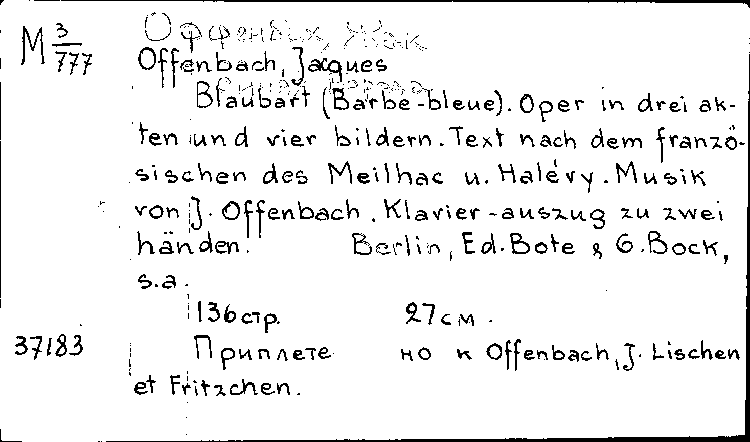 М 3/777
Оффенбах, Жак
Offenbach, Jacques
Синяя борода
Blaubart (Barbe-bleue). Oper in drei ak-
ten und vier bildern. Text nach dem franzö-
sischen des Meilhac u. Halévy. Musik
von J. Offenbach. Klavier-auszug zu zwei
händen. Berlin, Ed. Bote & G. Bock,
s.a.
136 стр. 27 см.
37183 Приплете но к Offenbach, J. Lischen
et Fritzchen.